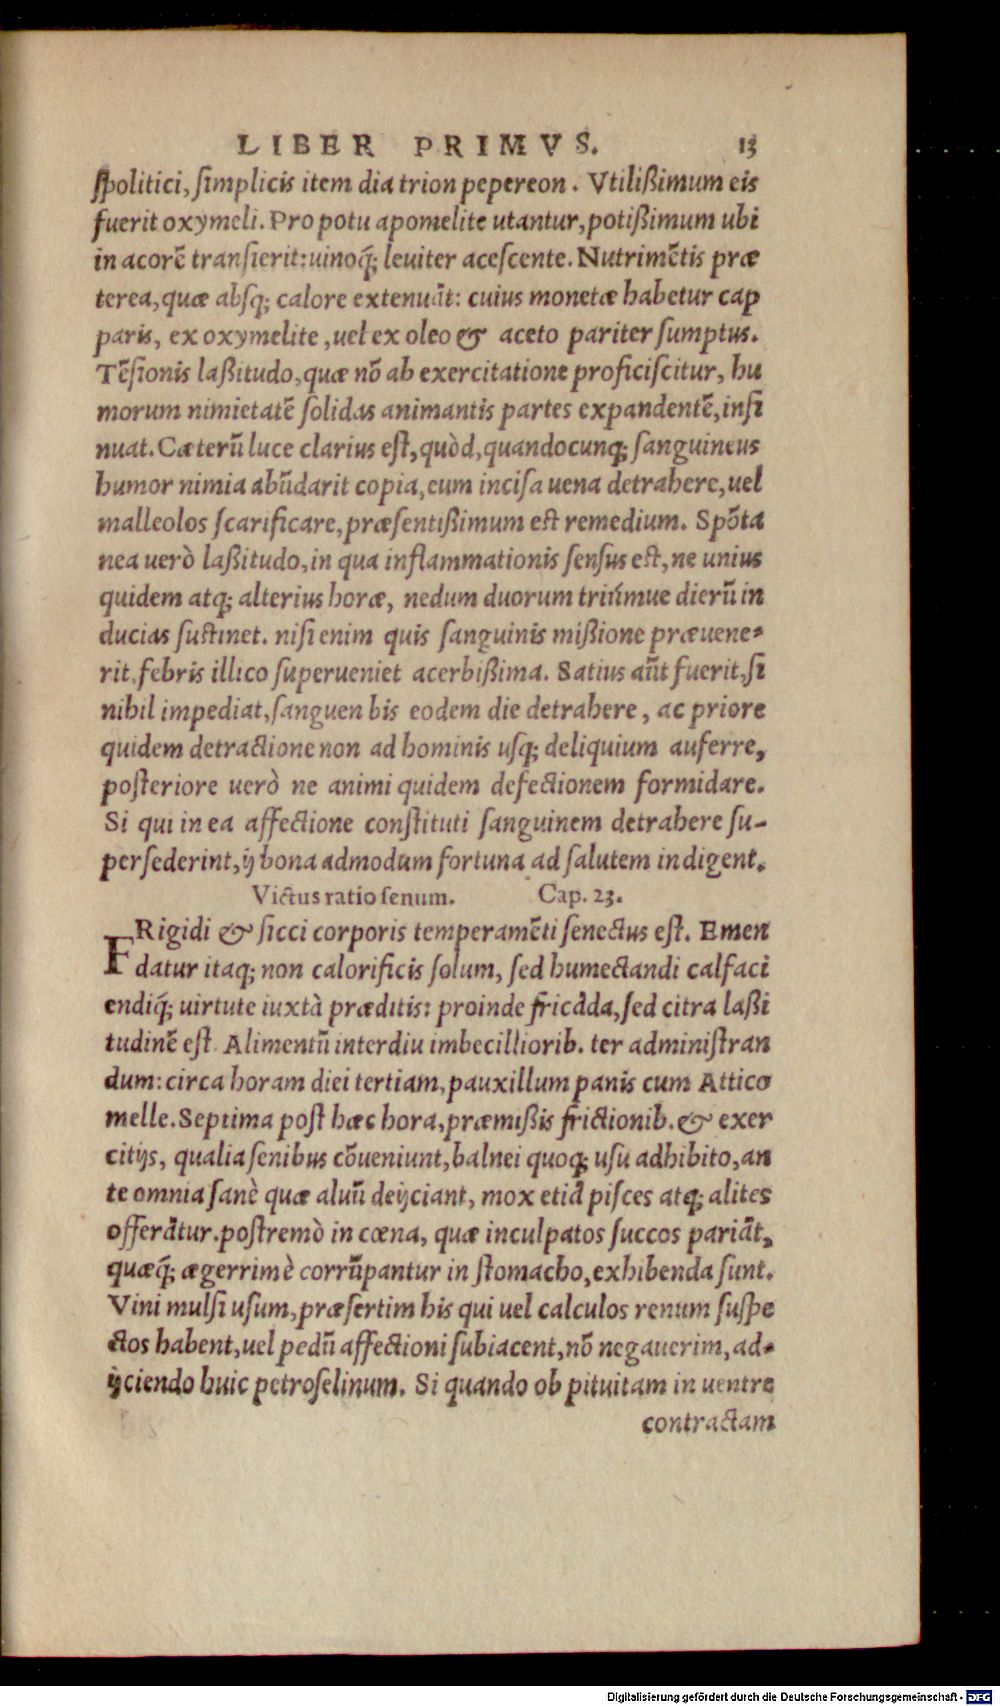 LIBER PRIMVS. 13
ſpolitici, ſimplicis item dia trion pepereon. Vtilißimum eis
fuerit oxymeli. Pro potu apomelite utantur, potißimum ubi
in acorē tranſierit: uinoq́; leuiter aceſcente. Nutrimētis præ
terea, quæ abſq; calore extenuāt: cuius monetæ habetur cap
paris, ex oxymelite, uel ex oleo & aceto pariter ſumptus.
Tēſionis laßitudo, quæ nō ab exercitatione proficiſcitur, hu
morum nimietatē ſolidas animantis partes expandentē, inſi
nuat. Cæterū luce clarius eſt, quòd, quandocunq; ſanguineus
humor nimia abūdarit copia, eum inciſa uena detrahere, uel
malleolos ſcarificare, præſentißimum eſt remedium. Spōta
nea uerò laßitudo, in qua inflammationis ſenſus eſt, ne unius
quidem atq; alterius horæ, nedum duorum triúmue dierū in
ducias ſuſtinet. niſi enim quis ſanguinis mißione præuene-
rit, febris illico ſuperueniet acerbißima. Satius aūt fuerit, ſi
nihil impediat, ſanguen bis eodem die detrahere, ac priore
quidem detractione non ad hominis uſq; deliquium auferre,
poſteriore uerò ne animi quidem defectionem formidare.
Si qui in ea affectione conſtituti ſanguinem detrahere ſu-
perſederint, ij bona admodum fortuna ad ſalutem indigent.
Victus ratio ſenum. Cap. 23.
FRigidi & ſicci corporis temperamēti ſenectus eſt. Emen
datur itaq; non calorificis ſolum, ſed humectandi calfaci
endiq́; uirtute iuxtà præditis: proinde fricāda, ſed citra laßi
tudinē eſt. Alimentū interdiu imbecilliorib. ter adminiſtran
dum: circa horam diei tertiam, pauxillum panis cum Attico
melle. Septima poſt hæc hora, præmißis frictionib. & exer
citijs, qualia ſenibus cōueniunt, balnei quoq; uſu adhibito, an
te omnia ſanè quæ aluū deijciant, mox etiā piſces atq; alites
offerātur. poſtremò in cœna, quæ inculpatos ſuccos pariāt,
quæq́; ægerrimè corrūpantur in ſtomacho, exhibenda ſunt.
Vini mulſi uſum, præſertim his qui uel calculos renum ſuſpe
ctos habent, uel pedū affectioni ſubiacent, nō negauerim, ad-
ijciendo huic petroſelinum. Si quando ob pituitam in uentre
contractam
Digitalisierung gefördert durch die Deutsche Forschungsgemeinschaft - DFG